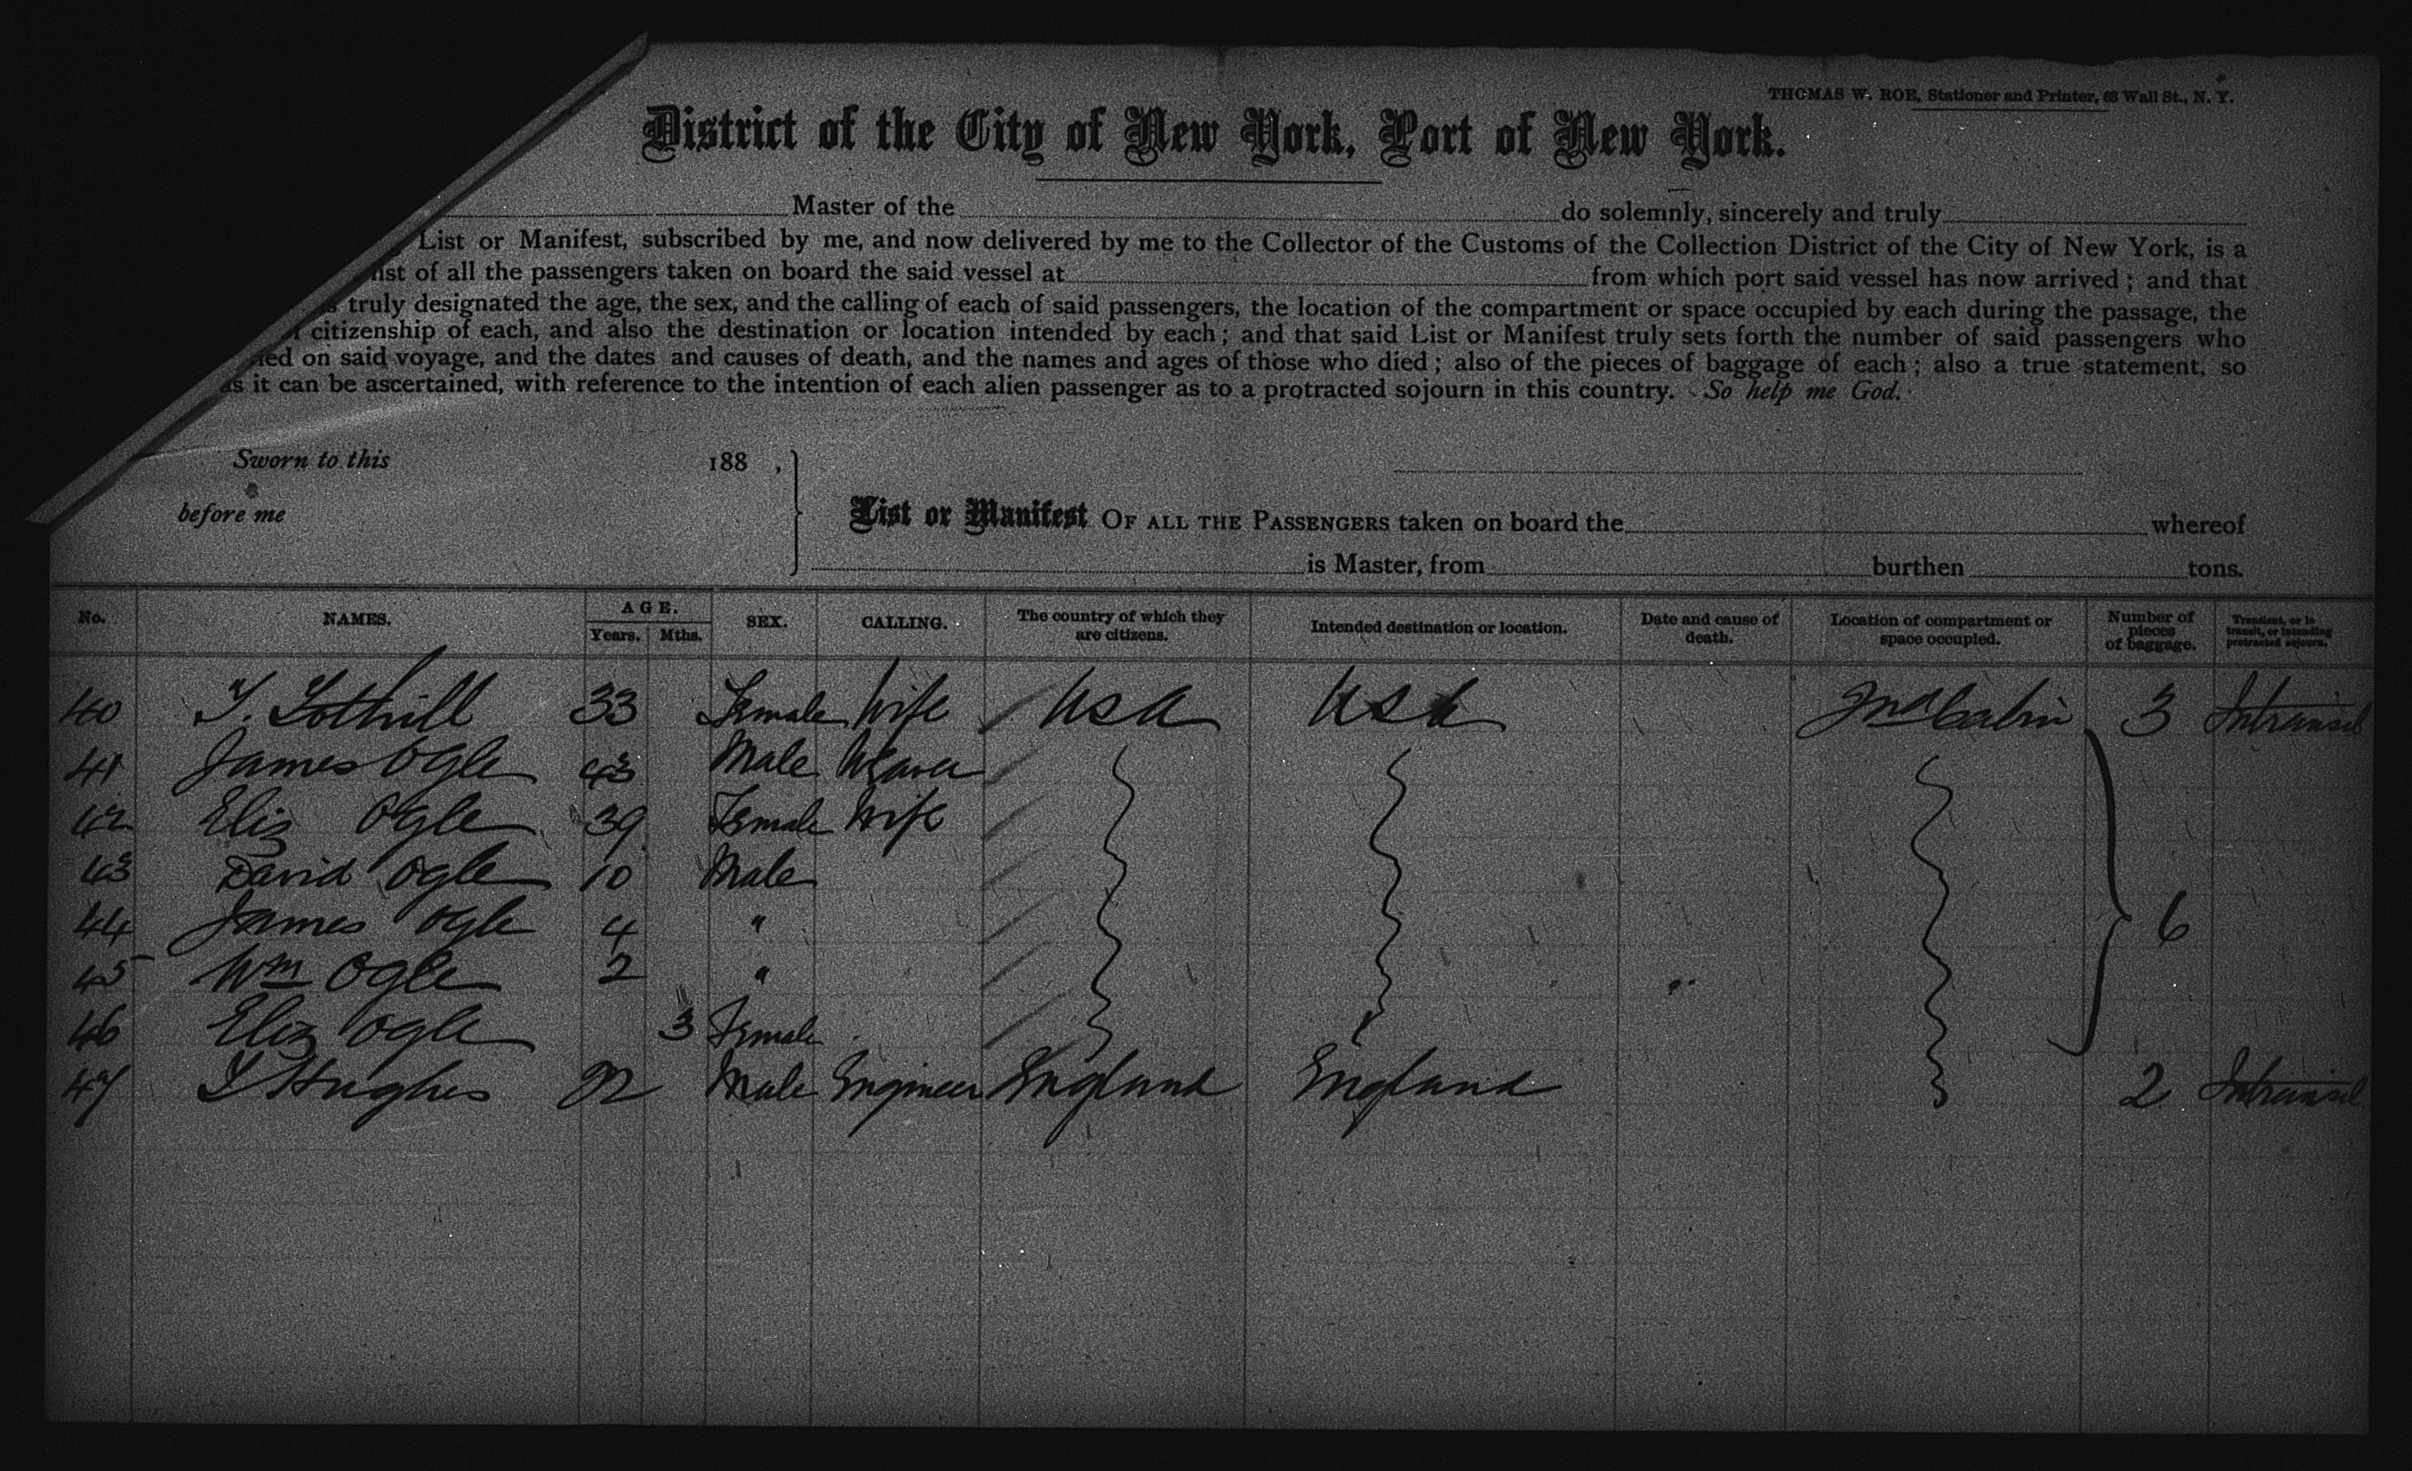 THOMAS W. ROE, Stationer and Printer, 68 Wall St., N. Y.
District of the City of New York, Port of New York.
Master of the do solemnly, sincerely and truly
List or Manifest, subscribed by me, and now delivered by me to the Collector of the Customs of the Collection District of the City of New York, is a
list of all the passengers taken on board the said vessel at from which port said vessel has now arrived; and that
truly designated the age, the sex, and the calling of each of said passengers, the location of the compartment or space occupied by each during the passage, the
citizenship of each, and also the destination or location intended by each; and that said List or Manifest truly sets forth the number of said passengers who
on said voyage, and the dates and causes of death, and the names and ages of those who died; also of the pieces of baggage of each; also a true statement, so
as it can be ascertained, with reference to the intention of each alien passenger as to a protracted sojourn in this country. So help me God.
Sworn to this 188 ,
before me
List or Manifest OF ALL THE PASSENGERS taken on board the whereof
is Master, from burthen tons.
No. NAMES. AGE. Years. Mths. SEX. CALLING. The country of which they are citizens. Intended destination or location. Date and cause of death. Location of compartment or space occupied. Number of pieces of baggage. Transient, or in transit, or intending protracted sojourn.
40 33 Female Wife USA USA 2nd Cabin 3 Intransit
41 James Ogle 43 Male Weaver
42 Eliz Ogle 39 Female Wife
43 David Ogle 10 Male
44 James Ogle 4 " 6
45 Wm Ogle 2 "
46 Eliz Ogle 3 Female
47 Hughes 22 Male Engineer England England 2 Intransit